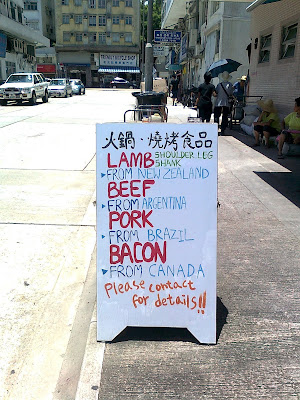 火鍋、燒烤食品
LAMB SHOULDER LEG
SHANK
▸FROM NEW ZEALAND
BEEF
▸FROM ARGENTINA
PORK
▸FROM BRAZIL
BACON
▸FROM CANADA
Please contact
for details!!